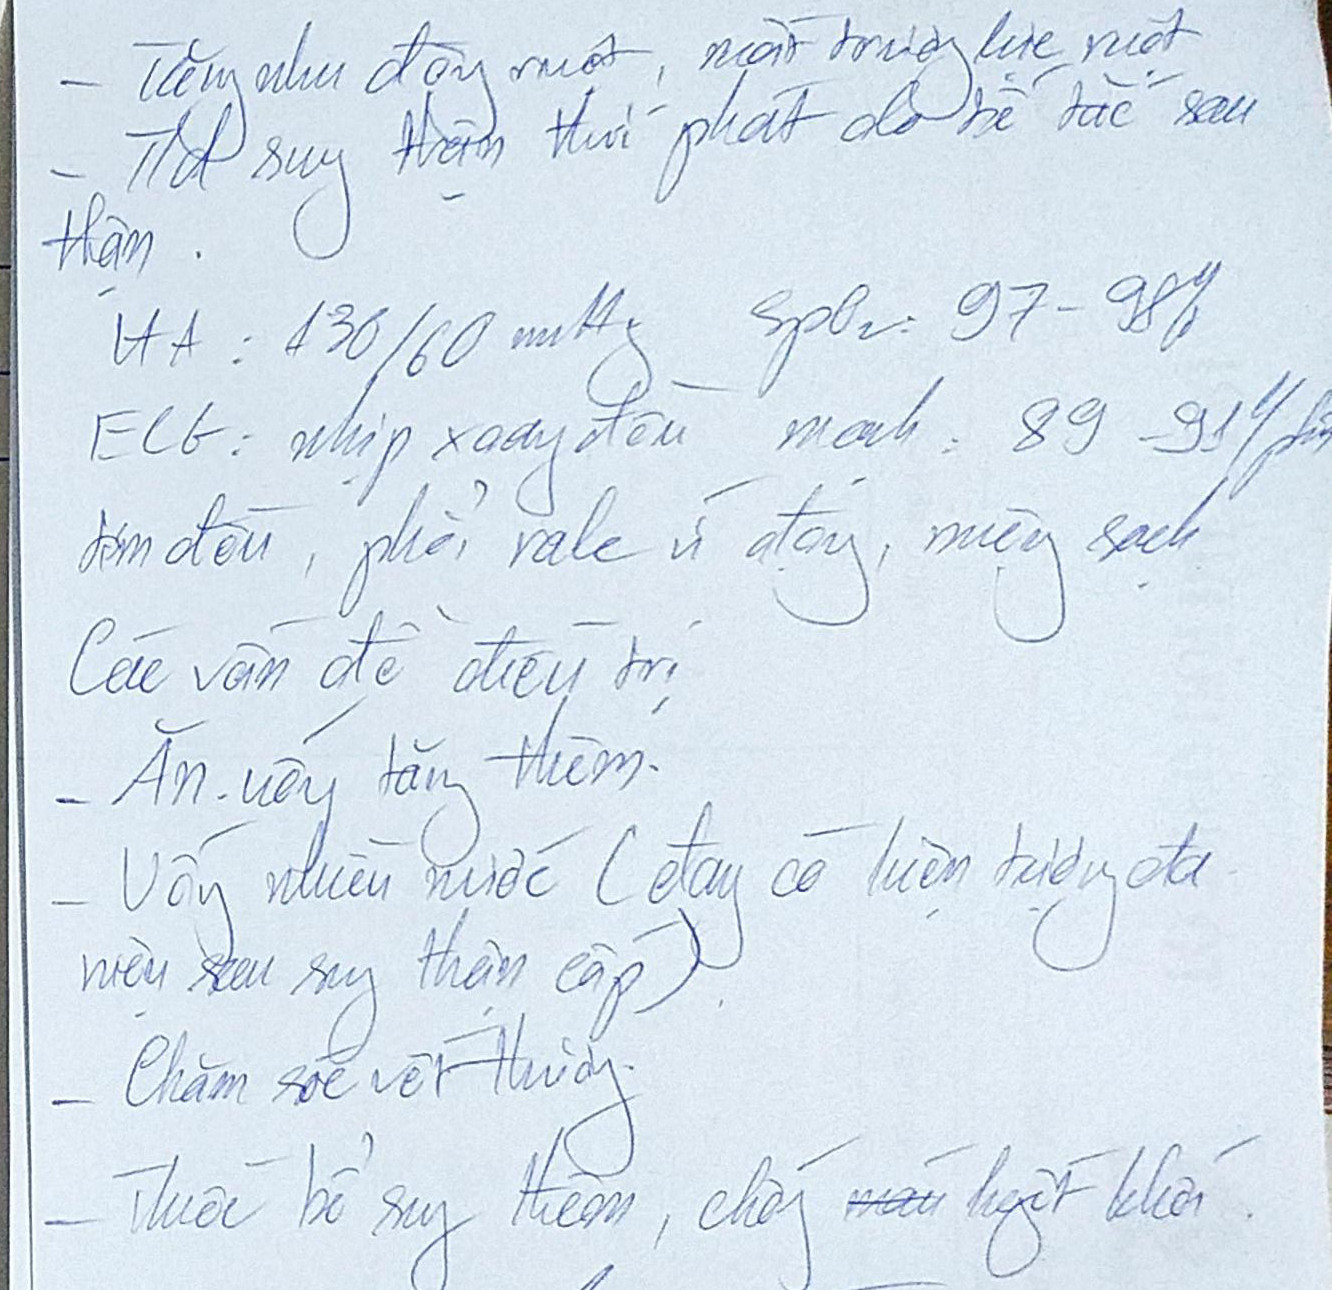 - Tăng nhu động ruột, mất trương lực ruột
- TD suy thận thứ phát do bế tắc sau
thận.
HA: 130/60 mmHg SpO2: 97-98%
ECG: nhịp xoay đều mạch: 89-91 l/phút
tim đều, phổi rale ứ đọng, miệng sạch
Các vấn đề điều trị
- Ăn uống tăng thêm.
- Uống nhiều nước (đang có hiện tượng đa
niệu sau suy thận cấp).
- Chăm sóc vết thương.
- Thuốc bổ sung thêm, chống huyết khối.